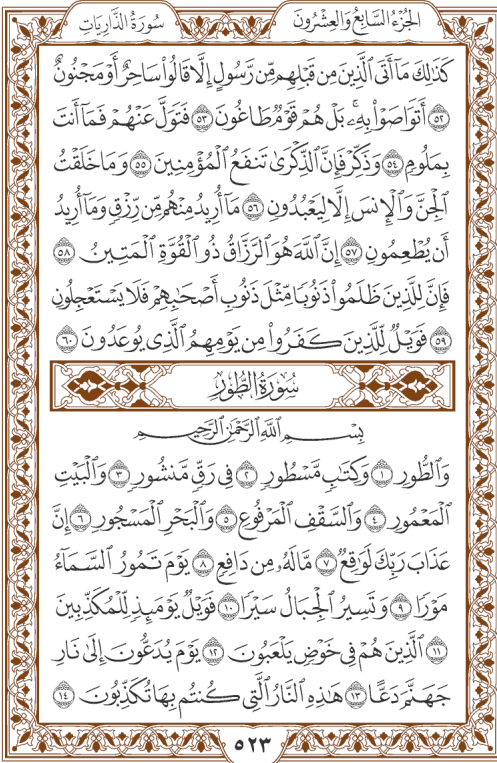 الجزء السابع والعشرون
سورة الذاريات
كَذَٰلِكَ مَآ أَتَى ٱلَّذِينَ مِن قَبْلِهِم مِّن رَّسُولٍ إِلَّا قَالُوا۟ سَاحِرٌ أَوْ مَجْنُونٌ
٥٢ أَتَوَاصَوْا۟ بِهِۦ ۚ بَلْ هُمْ قَوْمٌ طَاغُونَ ٥٣ فَتَوَلَّ عَنْهُمْ فَمَآ أَنتَ
بِمَلُومٍ ٥٤ وَذَكِّرْ فَإِنَّ ٱلذِّكْرَىٰ تَنفَعُ ٱلْمُؤْمِنِينَ ٥٥ وَمَا خَلَقْتُ
ٱلْجِنَّ وَٱلْإِنسَ إِلَّا لِيَعْبُدُونِ ٥٦ مَآ أُرِيدُ مِنْهُم مِّن رِّزْقٍ وَمَآ أُرِيدُ
أَن يُطْعِمُونِ ٥٧ إِنَّ ٱللَّهَ هُوَ ٱلرَّزَّاقُ ذُو ٱلْقُوَّةِ ٱلْمَتِينُ ٥٨
فَإِنَّ لِلَّذِينَ ظَلَمُوا۟ ذَنُوبًا مِّثْلَ ذَنُوبِ أَصْحَٰبِهِمْ فَلَا يَسْتَعْجِلُونِ
٥٩ فَوَيْلٌ لِّلَّذِينَ كَفَرُوا۟ مِن يَوْمِهِمُ ٱلَّذِى يُوعَدُونَ ٦٠
سُورَةُ الطُّورِ
بِسْمِ ٱللَّهِ ٱلرَّحْمَٰنِ ٱلرَّحِيمِ
وَٱلطُّورِ ١ وَكِتَٰبٍ مَّسْطُورٍ ٢ فِى رَقٍّ مَّنشُورٍ ٣ وَٱلْبَيْتِ
ٱلْمَعْمُورِ ٤ وَٱلسَّقْفِ ٱلْمَرْفُوعِ ٥ وَٱلْبَحْرِ ٱلْمَسْجُورِ ٦ إِنَّ
عَذَابَ رَبِّكَ لَوَٰقِعٌ ٧ مَّا لَهُۥ مِن دَافِعٍ ٨ يَوْمَ تَمُورُ ٱلسَّمَآءُ
مَوْرًا ٩ وَتَسِيرُ ٱلْجِبَالُ سَيْرًا ١٠ فَوَيْلٌ يَوْمَئِذٍ لِّلْمُكَذِّبِينَ
١١ ٱلَّذِينَ هُمْ فِى خَوْضٍ يَلْعَبُونَ ١٢ يَوْمَ يُدَعُّونَ إِلَىٰ نَارِ
جَهَنَّمَ دَعًّا ١٣ هَٰذِهِ ٱلنَّارُ ٱلَّتِى كُنتُم بِهَا تُكَذِّبُونَ ١٤
٥٢٣